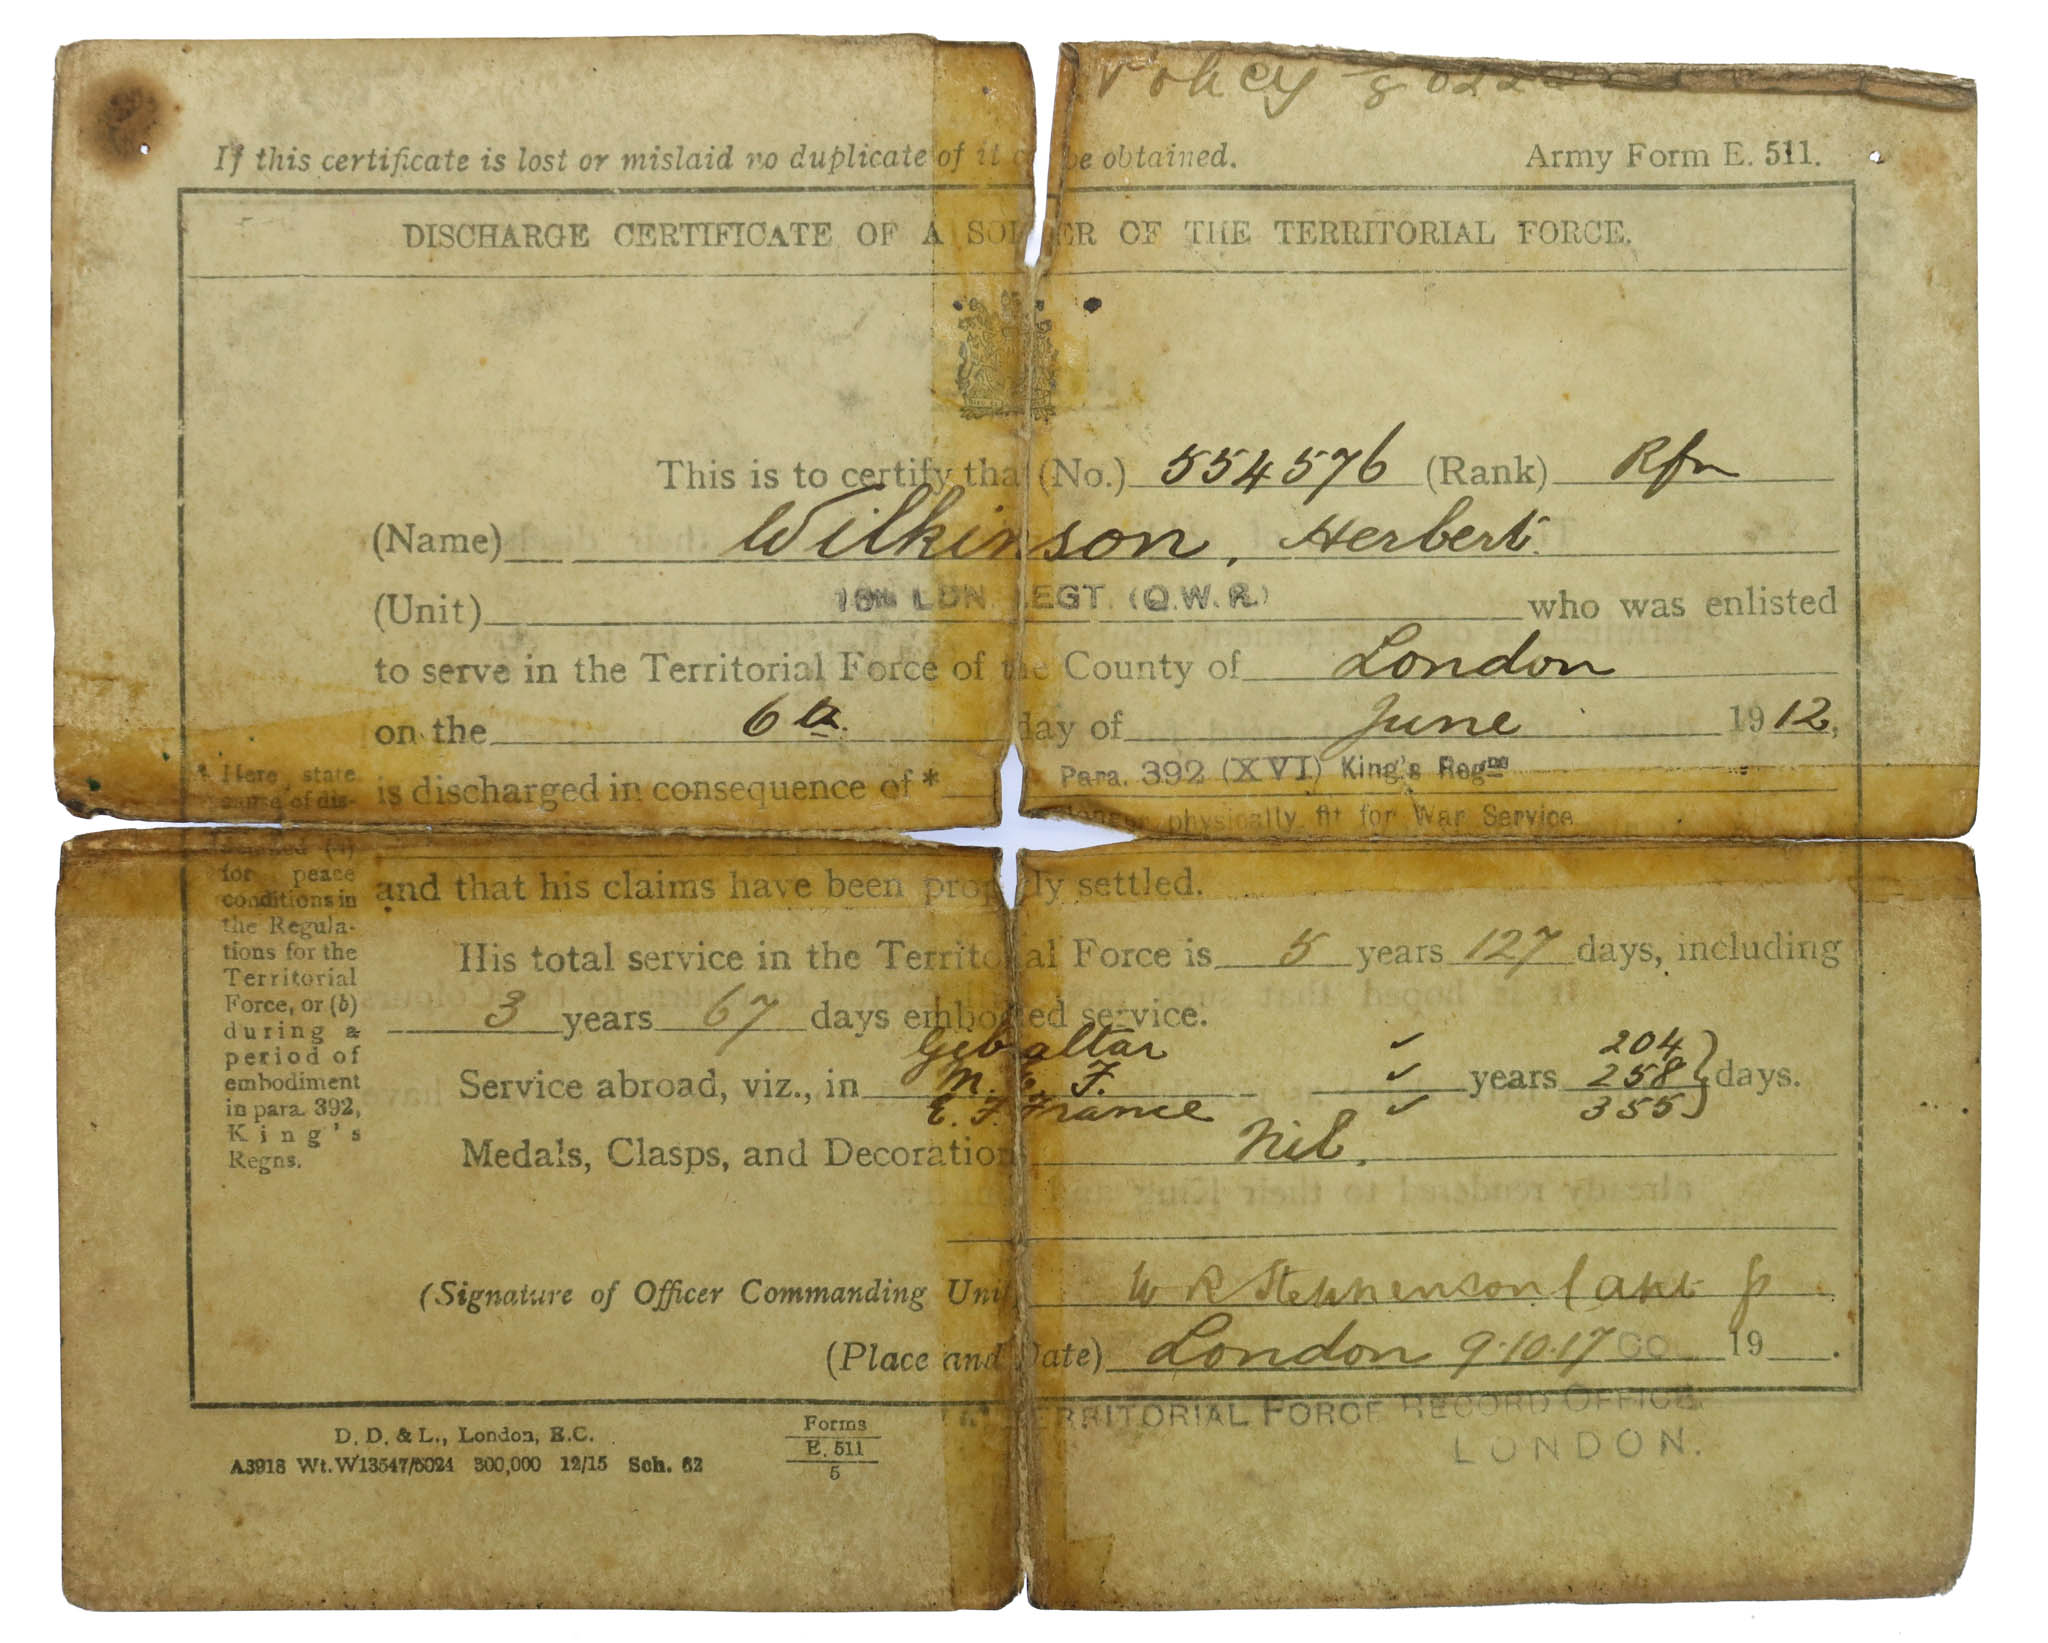 If this certificate is lost or mislaid no duplicate of it be obtained.
Army Form E. 511.
DISCHARGE CERTIFICATE OF A SOLDIER OF THE TERRITORIAL FORCE.
This is to certify that (No.) 554576 (Rank) Rfn
(Name) Wilkinson, Herbert.
(Unit) 16th LDN. REGT. (Q.W.R.) who was enlisted
to serve in the Territorial Force of the County of London
on the 6th. day of June 1912,
is discharged in consequence of * Para. 392 (XVI) King's Regns
physically fit for War Service
and that his claims have been properly settled.
His total service in the Territorial Force is 5 years 127 days, including
3 years 67 days embodied service.
Gibraltar ✓ 204
Service abroad, viz., in M. E. F. ✓ years 258 } days.
E. F. France ✓ 355
Medals, Clasps, and Decorations Nil.
(Signature of Officer Commanding Unit) W R Stephenson Capt
(Place and Date) London 9.10.17 19 .
TERRITORIAL FORCE RECORD OFFICE
LONDON.
* Here state
cause of dis-
for peace
conditions in
the Regula-
tions for the
Territorial
Force, or (b)
during a
period of
embodiment
in para. 392,
King's
Regns.
D. D. & L., London, E.C.
A3918 Wt. W13547/5024 300,000 12/15 Sch. 62
Forms
E. 511
5